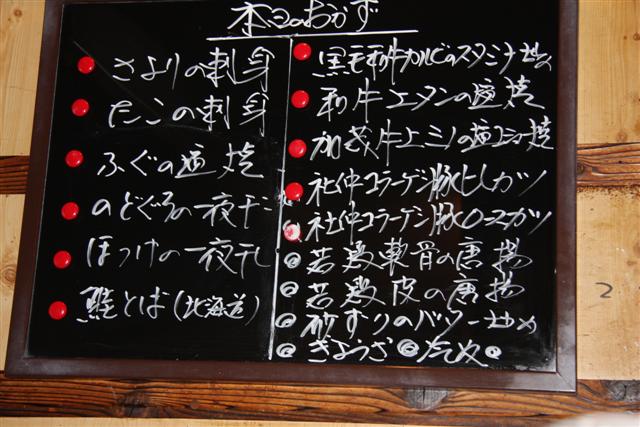 本日のおかず
さよりの刺身
たこの刺身
ふぐの塩焼
のどぐろの一夜干
ほっけの一夜干し
鮭とば(北海道)
黒毛和牛カルビのスタミナ炒め
和牛上タンの塩焼
加茂牛上ミノの塩コショー焼
社仲コラーゲン豚ヒレカツ
社仲コラーゲン豚ロースカツ
若鶏軟骨の唐揚
若鶏皮の唐揚
砂ずりのバター炒め
ぎょうざ
2